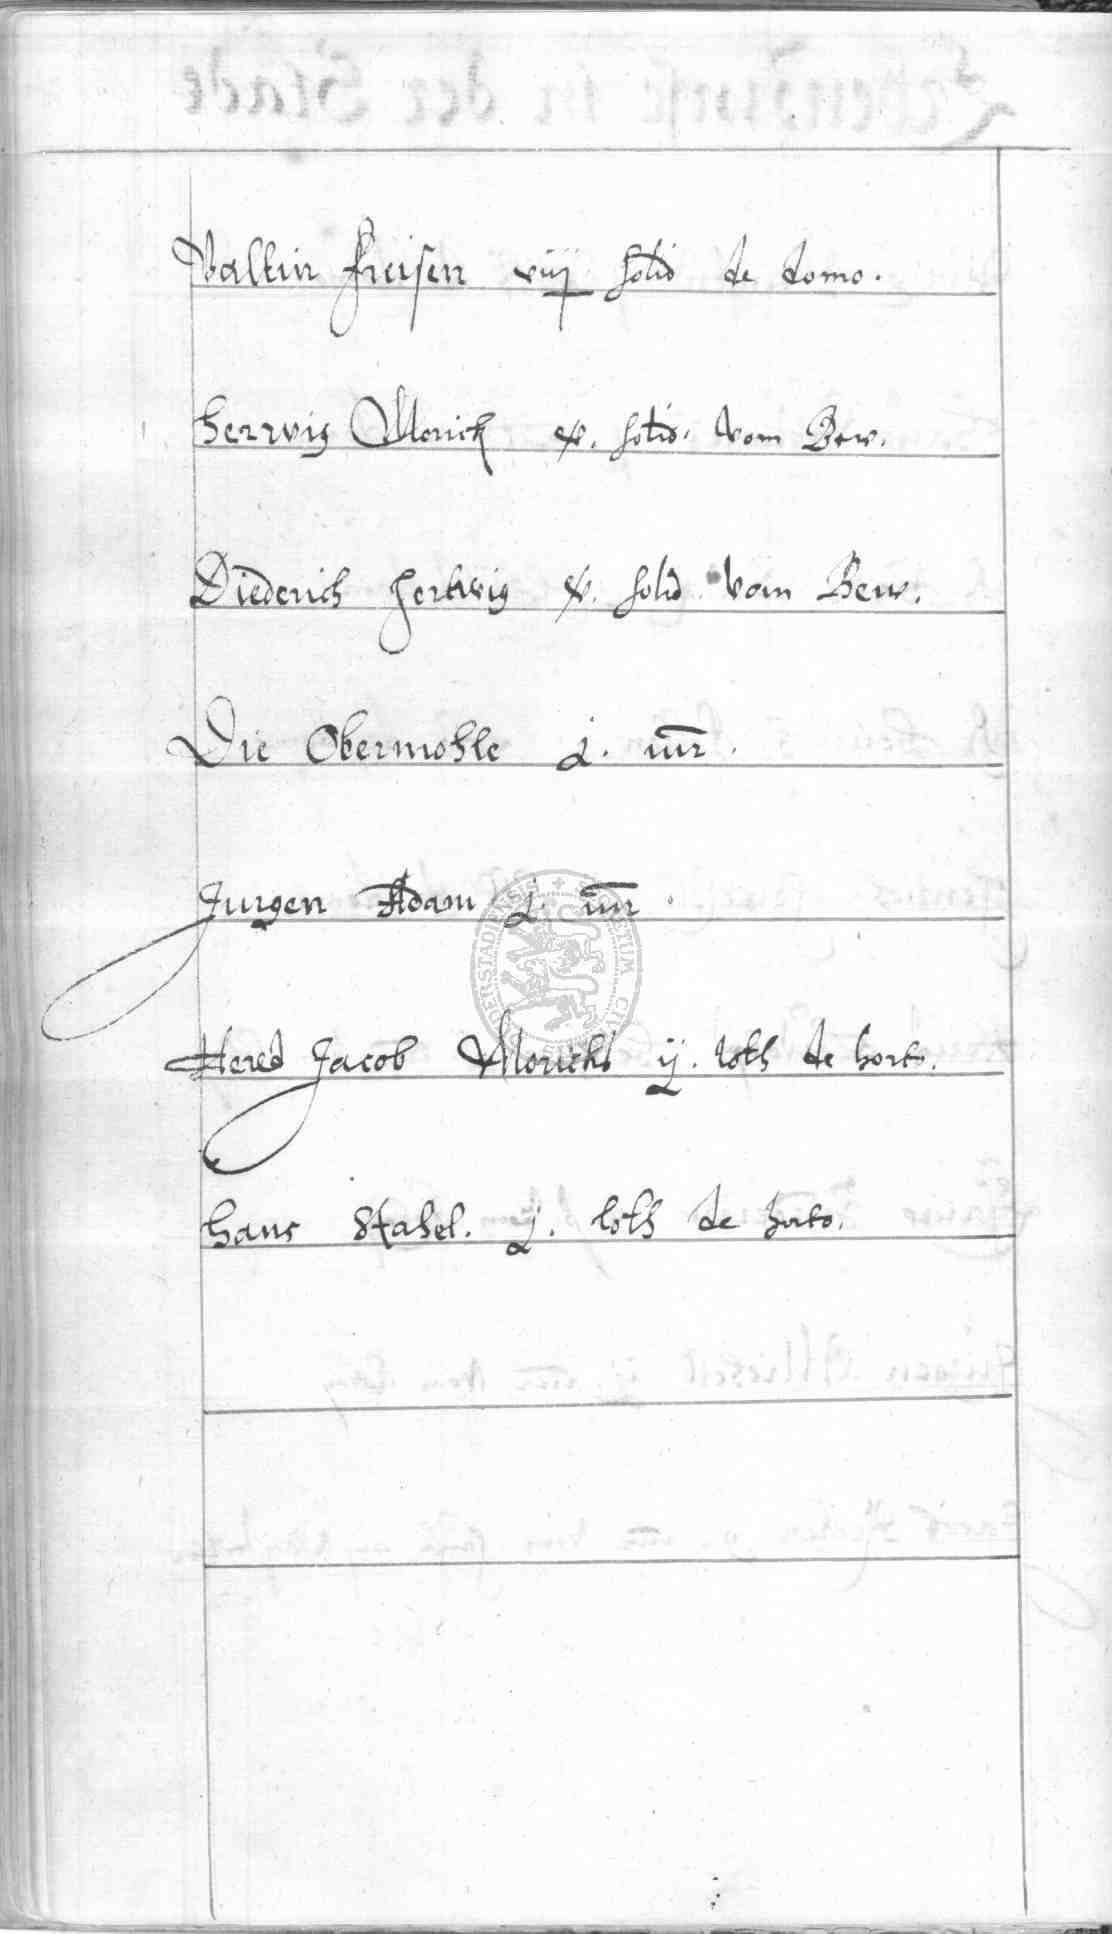 Valtin Freisen viij solid de domo.
Herwig Morick x. solid. vom Bew.
Diederich Hertwig x. solid vom Bew.
Die Obermohle j. mr.
Jurgen Adam j. mr.
Hered Jacob Moricks ij. loth de horto.
Hans Stahel. j. loth de horto.